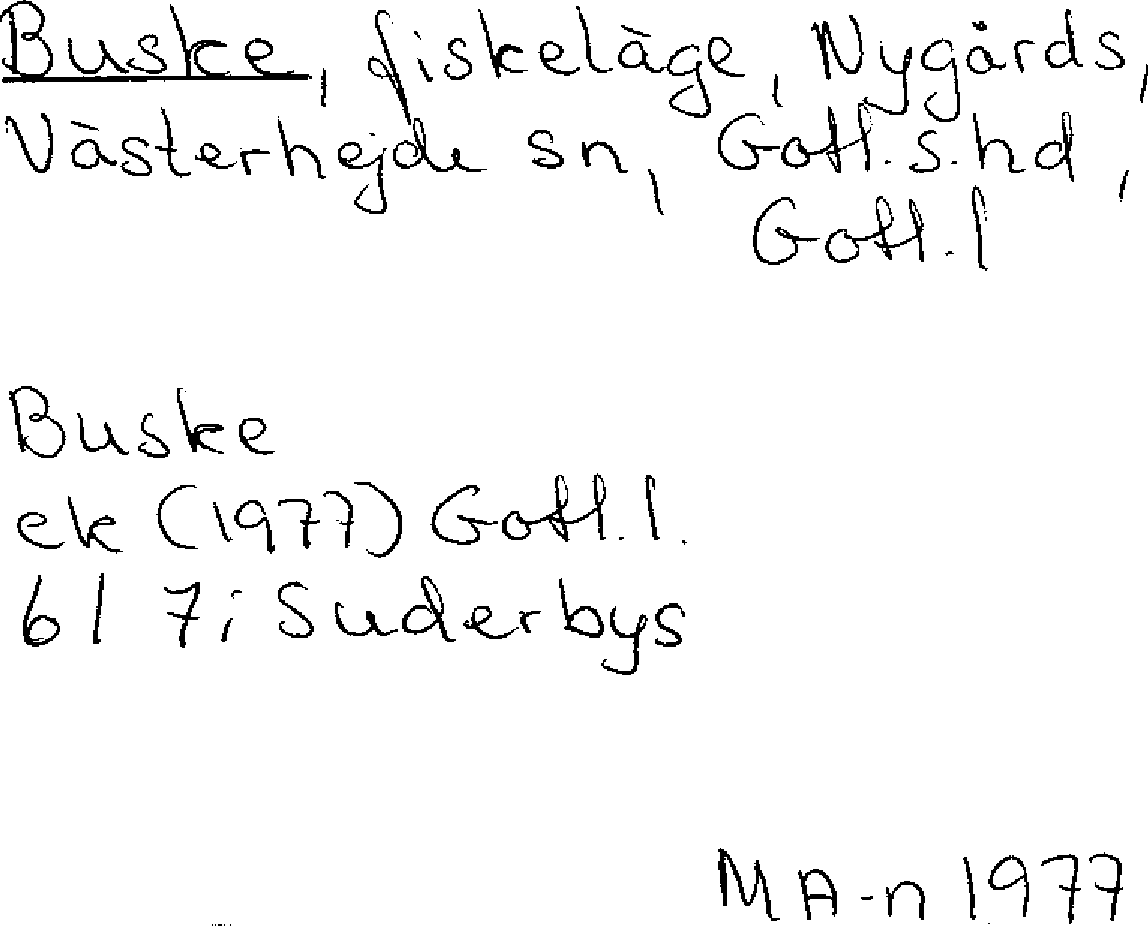 Buske, fiskeläge, Nygårds,
Västerhejde sn, Gotl. s. hd,
Gotl. l
Buske
ek (1977) Gotl. l.
6I 7i Suderbys
MA-n 1977